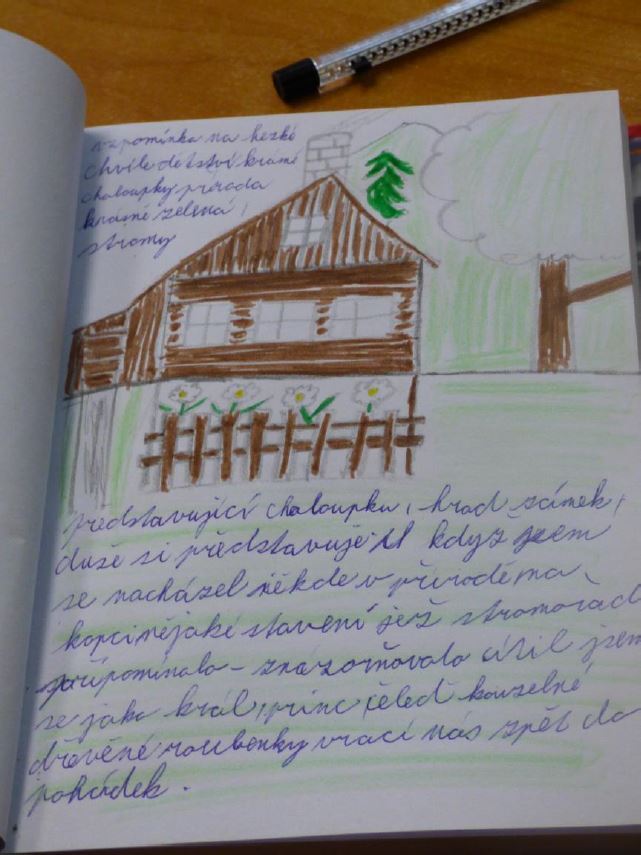 vzpomínka na hezké
chvíle dětství kramé
chaloupky příroda
krásně zelená,
stromy
představující chaloupku, hrad zámek,
duše si představuje když jsem
se nacházel někde v přírodě na
kopci nějaké stavení jež stromořad
připomínalo - znázorňovalo cítil jsem
se jako král, princ, čeleď kouzelné
dřevěné roubenky vrací nás zpět do
pohádek.